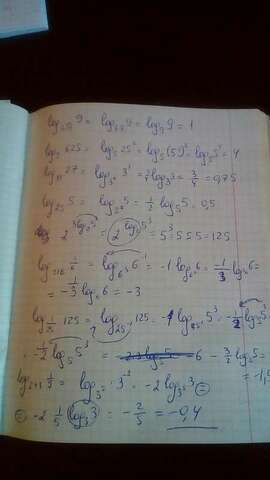 log₃√₉ 9 = log₉ 9 = log₉ 9 = 1
log₅ 625 = log₅ 25² = log₅ (5²)² = log₅ 5⁴ = 4
log₈₁ 27 = log₃⁴ 3³ = ¾ log₃ 3 = 3/4 = 0,75
log₂₅ 5 = log₅² 5 = ½ log₅ 5 = 0,5
2^(3 log₂ 5) = 2^(log₂ 5³) = 5³ = 5·5·5 = 125
log₂₁₆ 1/6 = log₆³ 6⁻¹ = -1 log₆³ 6 = -1/3 log₆ 6 =
= -1/3 log₆ 6 = -3
log 1/25 125 = log 25⁻¹ 125 = -1 log 25 5³ = -1/2 log₅ 5³
= -1/2 log₅ 5³ = 6 - 3/2 log₅ 5 =
= -1,5
log₂₄₃ 1/9 = log₃⁵ 3⁻² = -2 log₃⁵ 3 =
= -2 · 1/5 log₃ 3 = -2/5 = -0,4